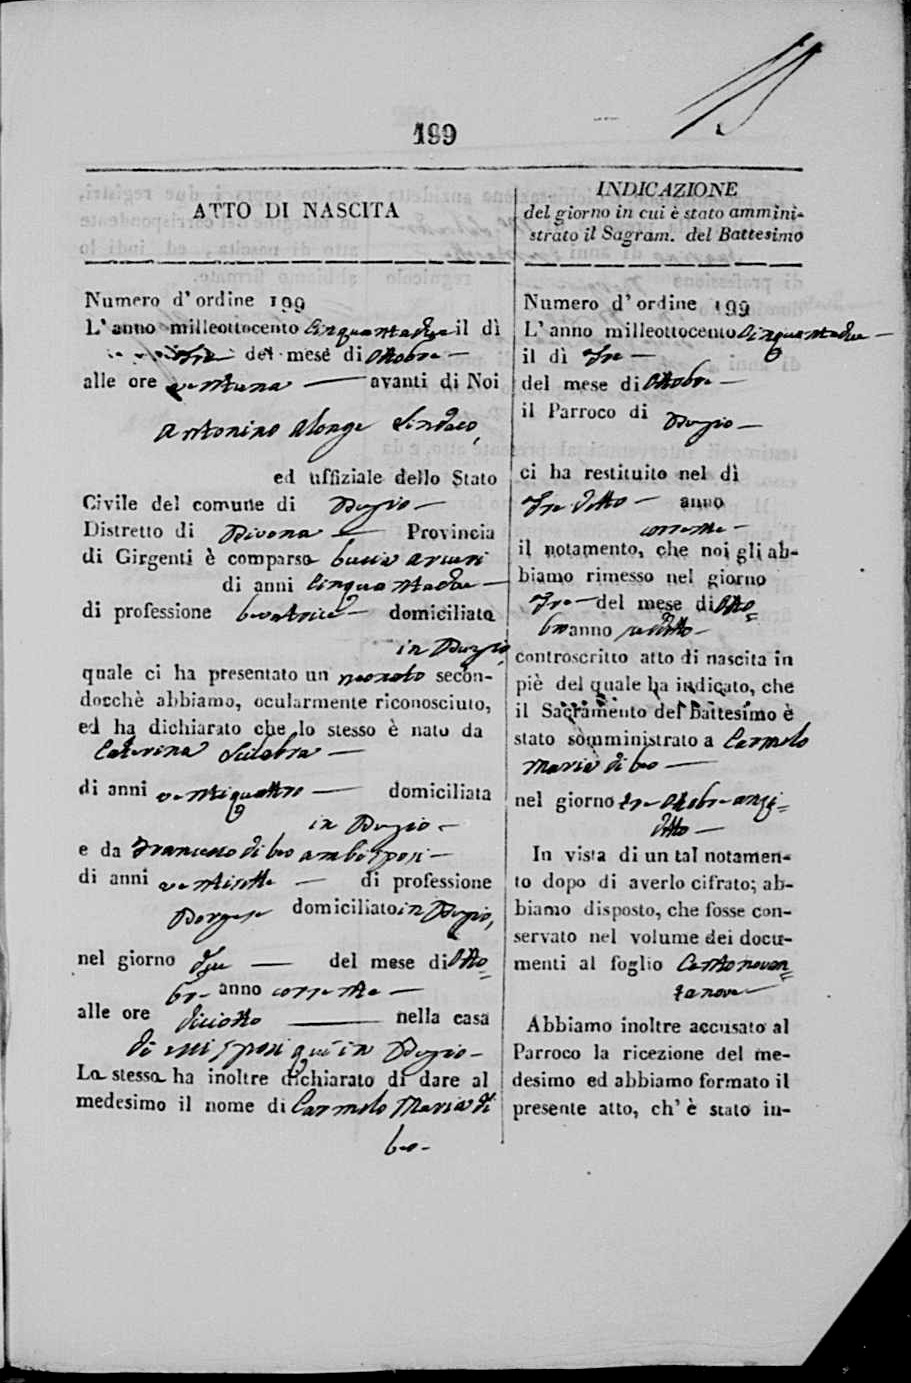 199
ATTO DI NASCITA
Numero d' ordine 199
L' anno milleottocento Cinquantadue il dì
Tre del mese di Ottobre
alle ore ventuna avanti di Noi
Antonino Alonge Sindaco
ed uffiziale dello Stato
Civile del comune di Burgio
Distretto di Bivona Provincia
di Girgenti è comparsa Lucia Arcuri
di anni Cinquantadue
di professione levatrice domiciliata
in Burgio
quale ci ha presentato un neonato secon-
docchè abbiamo, ocularmente riconosciuto,
ed ha dichiarato che lo stesso è nato da
Caterina
di anni ventiquattro domiciliata
in Burgio
e da Francesco di Leo ambi sposi
di anni ventisette di professione
Borgese domiciliato in Burgio,
nel giorno due del mese di Otto=
bre anno corrente
alle ore diciotto nella casa
di essi sposi quì in Burgio
La stessa ha inoltre dichiarato di dare al
medesimo il nome di Carmelo Maria di
Leo
INDICAZIONE
del giorno in cui è stato ammini-
strato il Sagram. del Battesimo
Numero d' ordine 199
L' anno milleottocento Cinquantadue
il dì Tre
del mese di Ottobre
il Parroco di Burgio
ci ha restituito nel dì
Tre detto anno
corrente
il notamento, che noi gli ab-
biamo rimesso nel giorno
Tre del mese di Otto=
bre anno sudetto
controscritto atto di nascita in
piè del quale ha indicato, che
il Sagramento del Battesimo è
stato somministrato a Carmelo
Maria di Leo
nel giorno tre Ottobre anzi=
detto
In vista di un tal notamen-
to dopo di averlo cifrato; ab-
biamo disposto, che fosse con-
servato nel volume dei docu-
menti al foglio Centonovan=
tanove
Abbiamo inoltre accusato al
Parroco la ricezione del me-
desimo ed abbiamo formato il
presente atto, ch' è stato in-